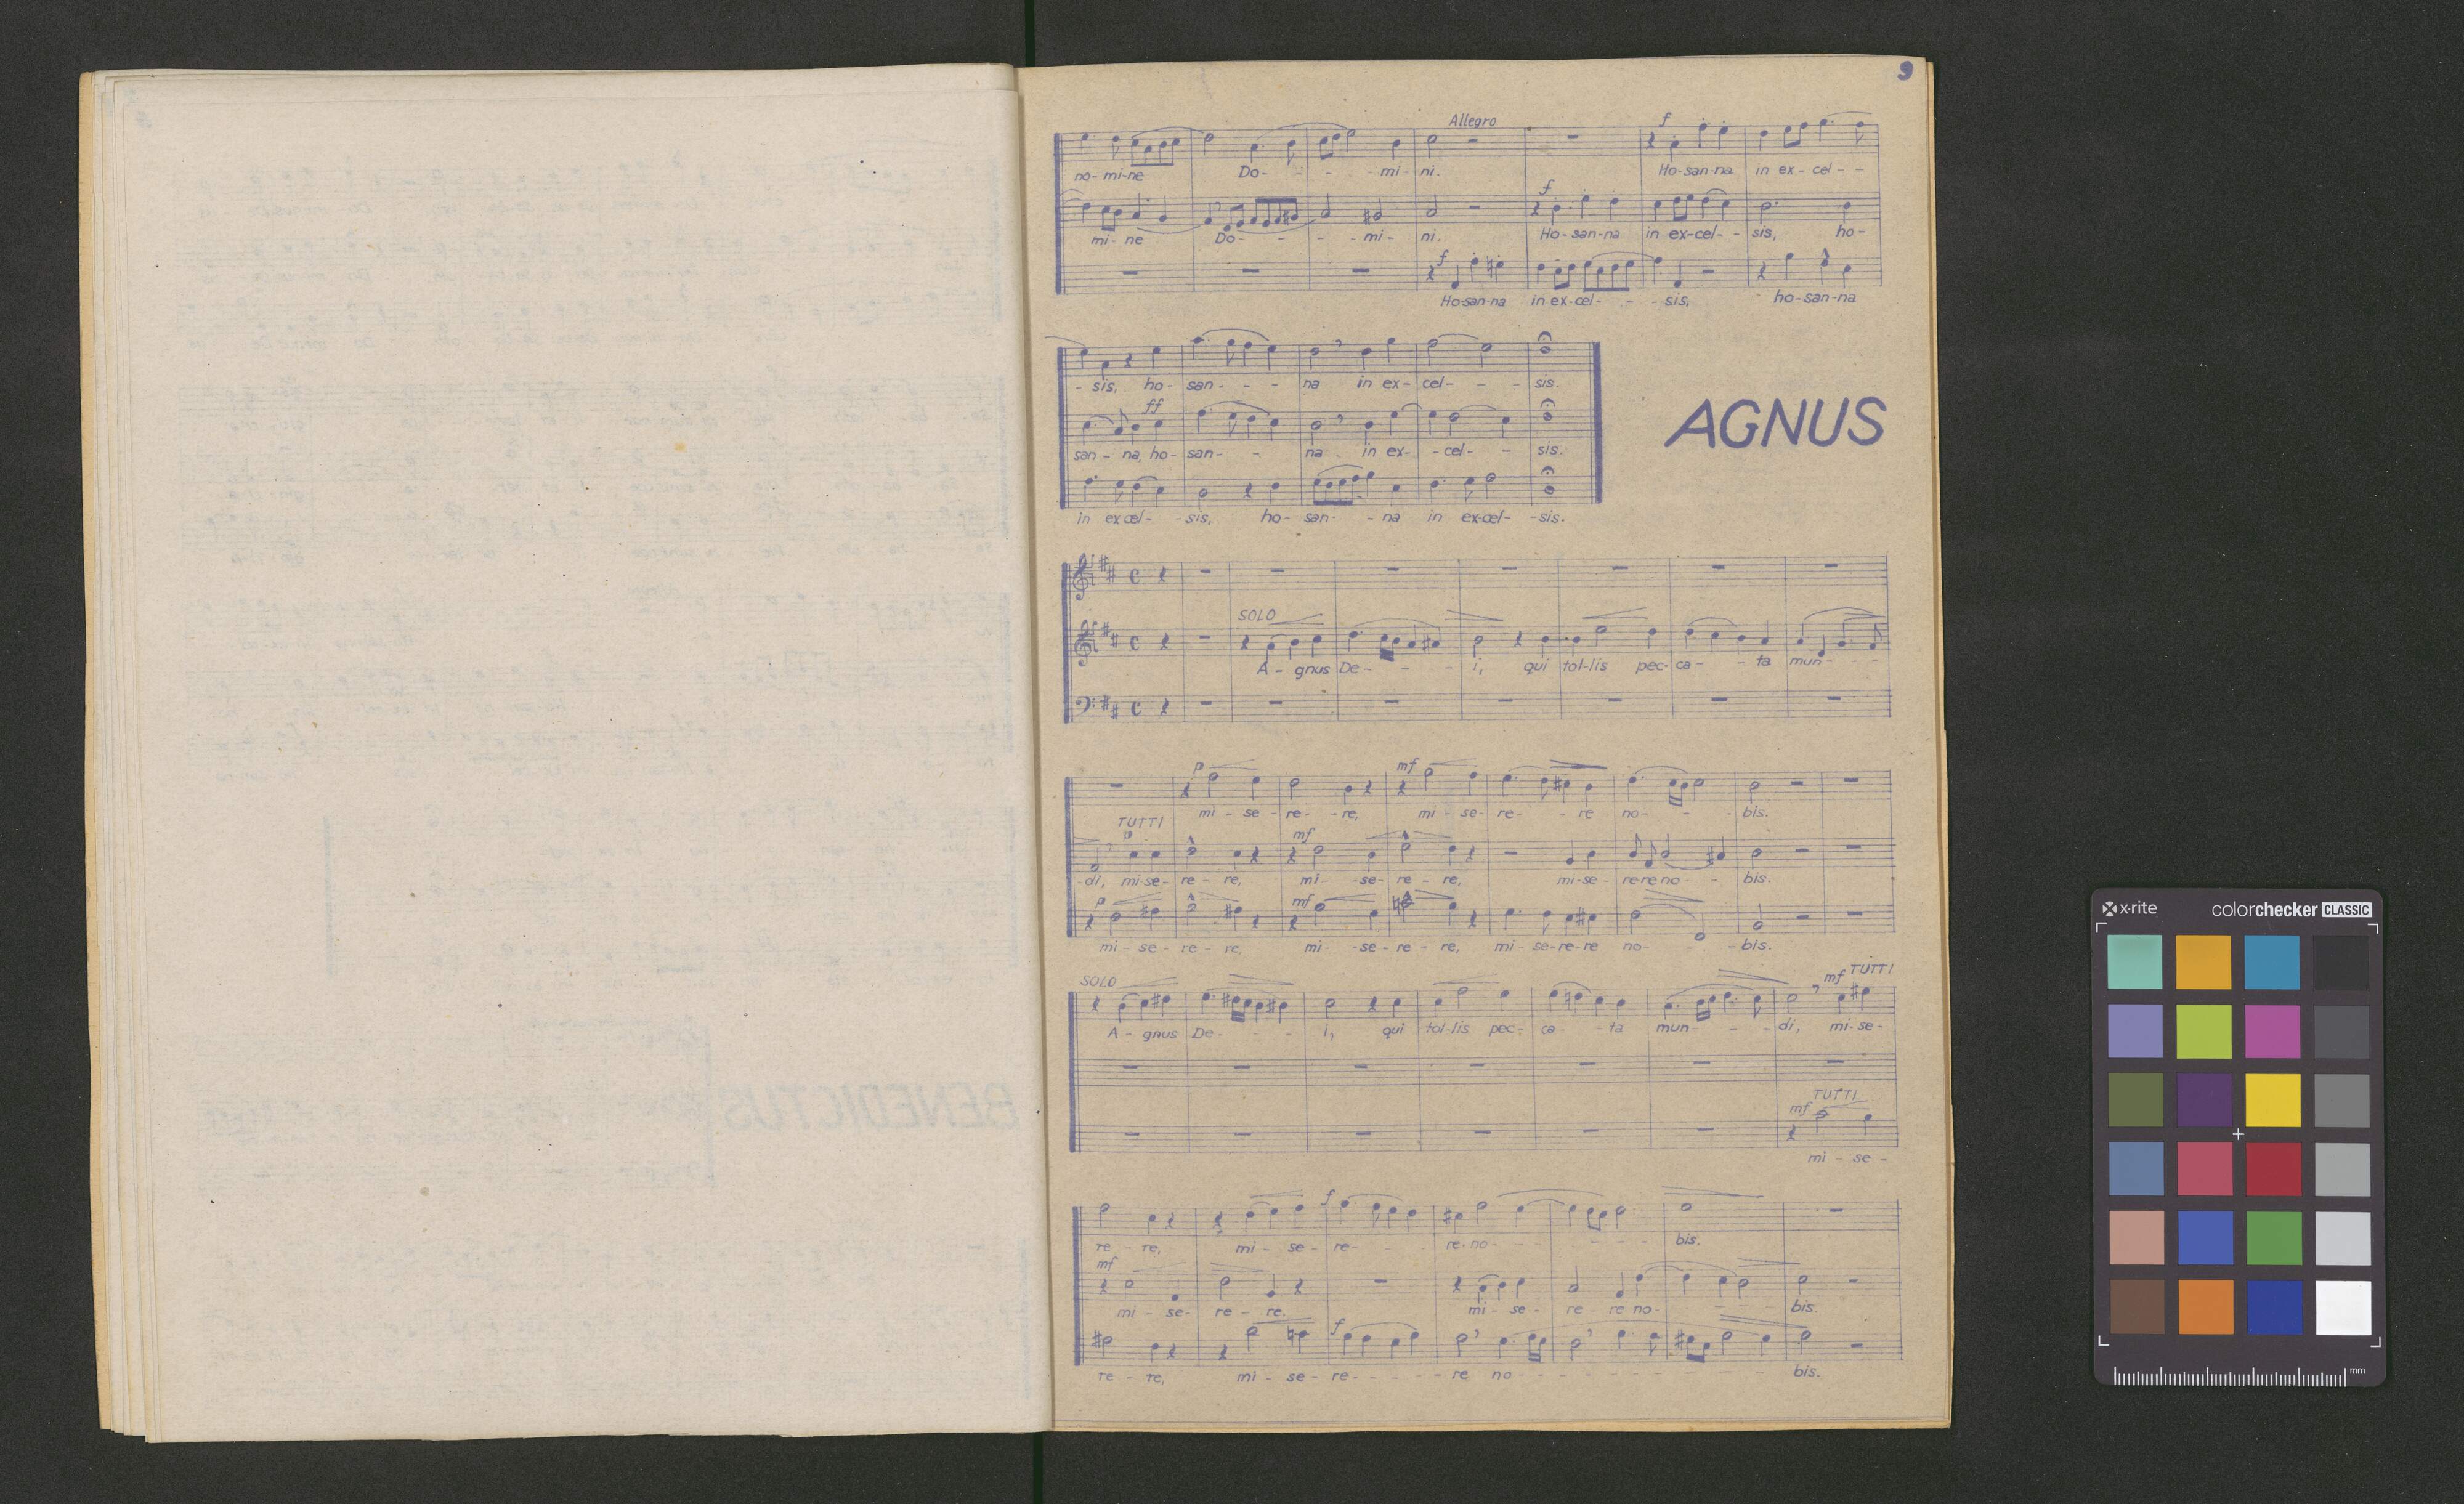 9
Allegro
f
no-mi-ne Do- - - -mi- ni. Ho-san-na in ex-cel- -
f
mi-ne Do- - - -mi- ni. Ho-san-na in ex-cel- - sis, ho-
f
Ho-san-na in ex-cel- - - sis, ho-san-na
- sis, ho- san- - - na in ex- cel- - - sis.
ff
san-na, ho- san- - na in ex- -cel- - sis.
in excel- -sis, ho- san- -na in ex-cel- -sis.
AGNUS
SOLO
A-gnus De- - - i, qui tol-lis pec-ca- -ta mun- - -
p mf
mi-se-re- -re, mi-se-re- -re no- - -bis.
TUTTI
p mf
-di, mi-se-re-re, mi- -se-re-re, mi-se-re-re no- - bis.
p mf
mi-se-re-re, mi- -se-re-re, mi-se-re-re no- - -bis.
SOLO mf TUTTI
A-gnus De- - - i, qui tol-lis pec-ca- -ta mun- - - -di, mi-se-
TUTTI
mf
mi-se-
f
re-re, mi-se-re- - re-no- - - - - bis.
mf
mi-se-re-re. mi-se-re-re no- - - - bis.
f
re-re, mi-se-re- - - -re no- - - - - - - - bis.
BENEDICTUS
x·rite colorchecker CLASSIC
mm